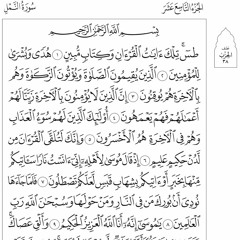 الجزء التاسع عشر
سورة النمل
بِسْمِ اللَّهِ الرَّحْمَٰنِ الرَّحِيمِ
طسٓ ۚ تِلْكَ ءَايَٰتُ ٱلْقُرْءَانِ وَكِتَابٍ مُّبِينٍ ١ هُدًى وَبُشْرَىٰ
لِلْمُؤْمِنِينَ ٢ ٱلَّذِينَ يُقِيمُونَ ٱلصَّلَوٰةَ وَيُؤْتُونَ ٱلزَّكَوٰةَ وَهُم
بِٱلْءَاخِرَةِ هُمْ يُوقِنُونَ ٣ إِنَّ ٱلَّذِينَ لَا يُؤْمِنُونَ بِٱلْءَاخِرَةِ زَيَّنَّا لَهُمْ
أَعْمَٰلَهُمْ فَهُمْ يَعْمَهُونَ ٤ أُو۟لَٰٓئِكَ ٱلَّذِينَ لَهُمْ سُوٓءُ ٱلْعَذَابِ
وَهُمْ فِى ٱلْءَاخِرَةِ هُمُ ٱلْأَخْسَرُونَ ٥ وَإِنَّكَ لَتُلَقَّى ٱلْقُرْءَانَ مِن
لَّدُنْ حَكِيمٍ عَلِيمٍ ٦ إِذْ قَالَ مُوسَىٰ لِأَهْلِهِۦٓ إِنِّىٓ ءَانَسْتُ نَارًا سَـَٔاتِيكُم
مِّنْهَا بِخَبَرٍ أَوْ ءَاتِيكُم بِشِهَابٍ قَبَسٍ لَّعَلَّكُمْ تَصْطَلُونَ ٧ فَلَمَّا جَآءَهَا
نُودِىَ أَنۢ بُورِكَ مَن فِى ٱلنَّارِ وَمَنْ حَوْلَهَا وَسُبْحَٰنَ ٱللَّهِ رَبِّ
ٱلْعَٰلَمِينَ ٨ يَٰمُوسَىٰٓ إِنَّهُۥٓ أَنَا ٱللَّهُ ٱلْعَزِيزُ ٱلْحَكِيمُ ٩ وَأَلْقِ عَصَاكَ